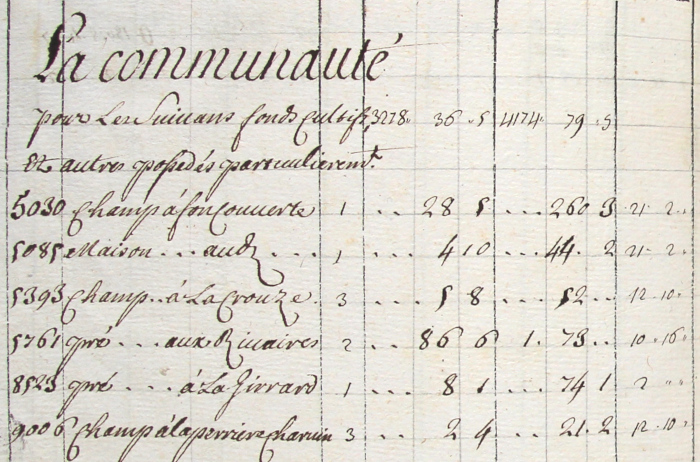 La communauté
pour Les Suivans fonds cultifs 3278. 36 .5 4174. 79 .5
Et autres possedés particulierem.t
5030 Champ à fon Couverte 1 ... 28 5 ... 260 3 21. 2..
5085 Maison ... audt ... 1 ... 4 10 ... 44. 2 21. 2..
5393 Champ .. à La Crouze. 3 ... 5 8 ... 52 ... 12 .10..
5761 pré ... aux Rivaires 2 ... 86 6 1. 73 .. 10 .16
8523 pré ... à La Girrard 1 ... 8 1 ... 74 1 2 ..
9006 Champ à la perriere charvin 3 ... 2 4 ... 21. 2 12 .10